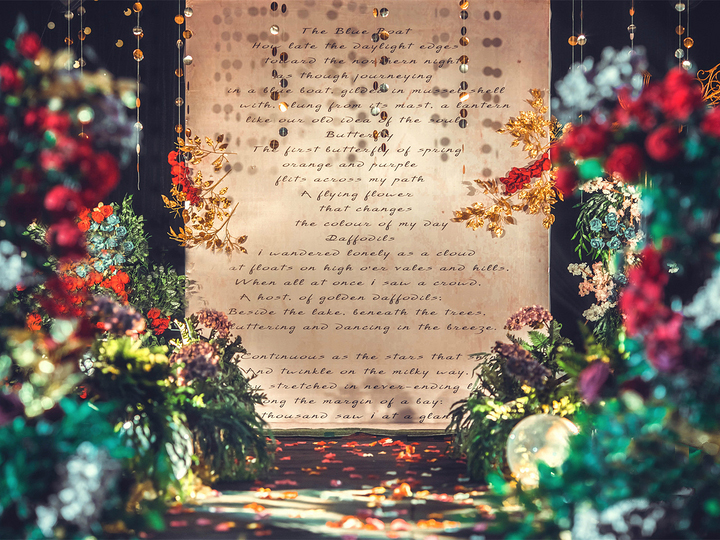 The Blue Boat
How late the daylight edges
toward the northern night
as though journeying
in a blue boat, gilded in mussel shell
with, slung from its mast, a lantern
like our old idea of the soul
Butterfly
The first butterfly of spring
orange and purple
flits across my path
A flying flower
that changes
the colour of my day
Daffodils
I wandered lonely as a cloud
at floats on high o'er vales and hills.
When all at once i saw a crowd.
A host, of golden daffodils:
Beside the lake, beneath the trees,
uttering and dancing in the breeze.
Continuous as the stars that
And twinkle on the milky way.
stretched in never-ending
ong the margin of a bay:
thousand saw i at a glan